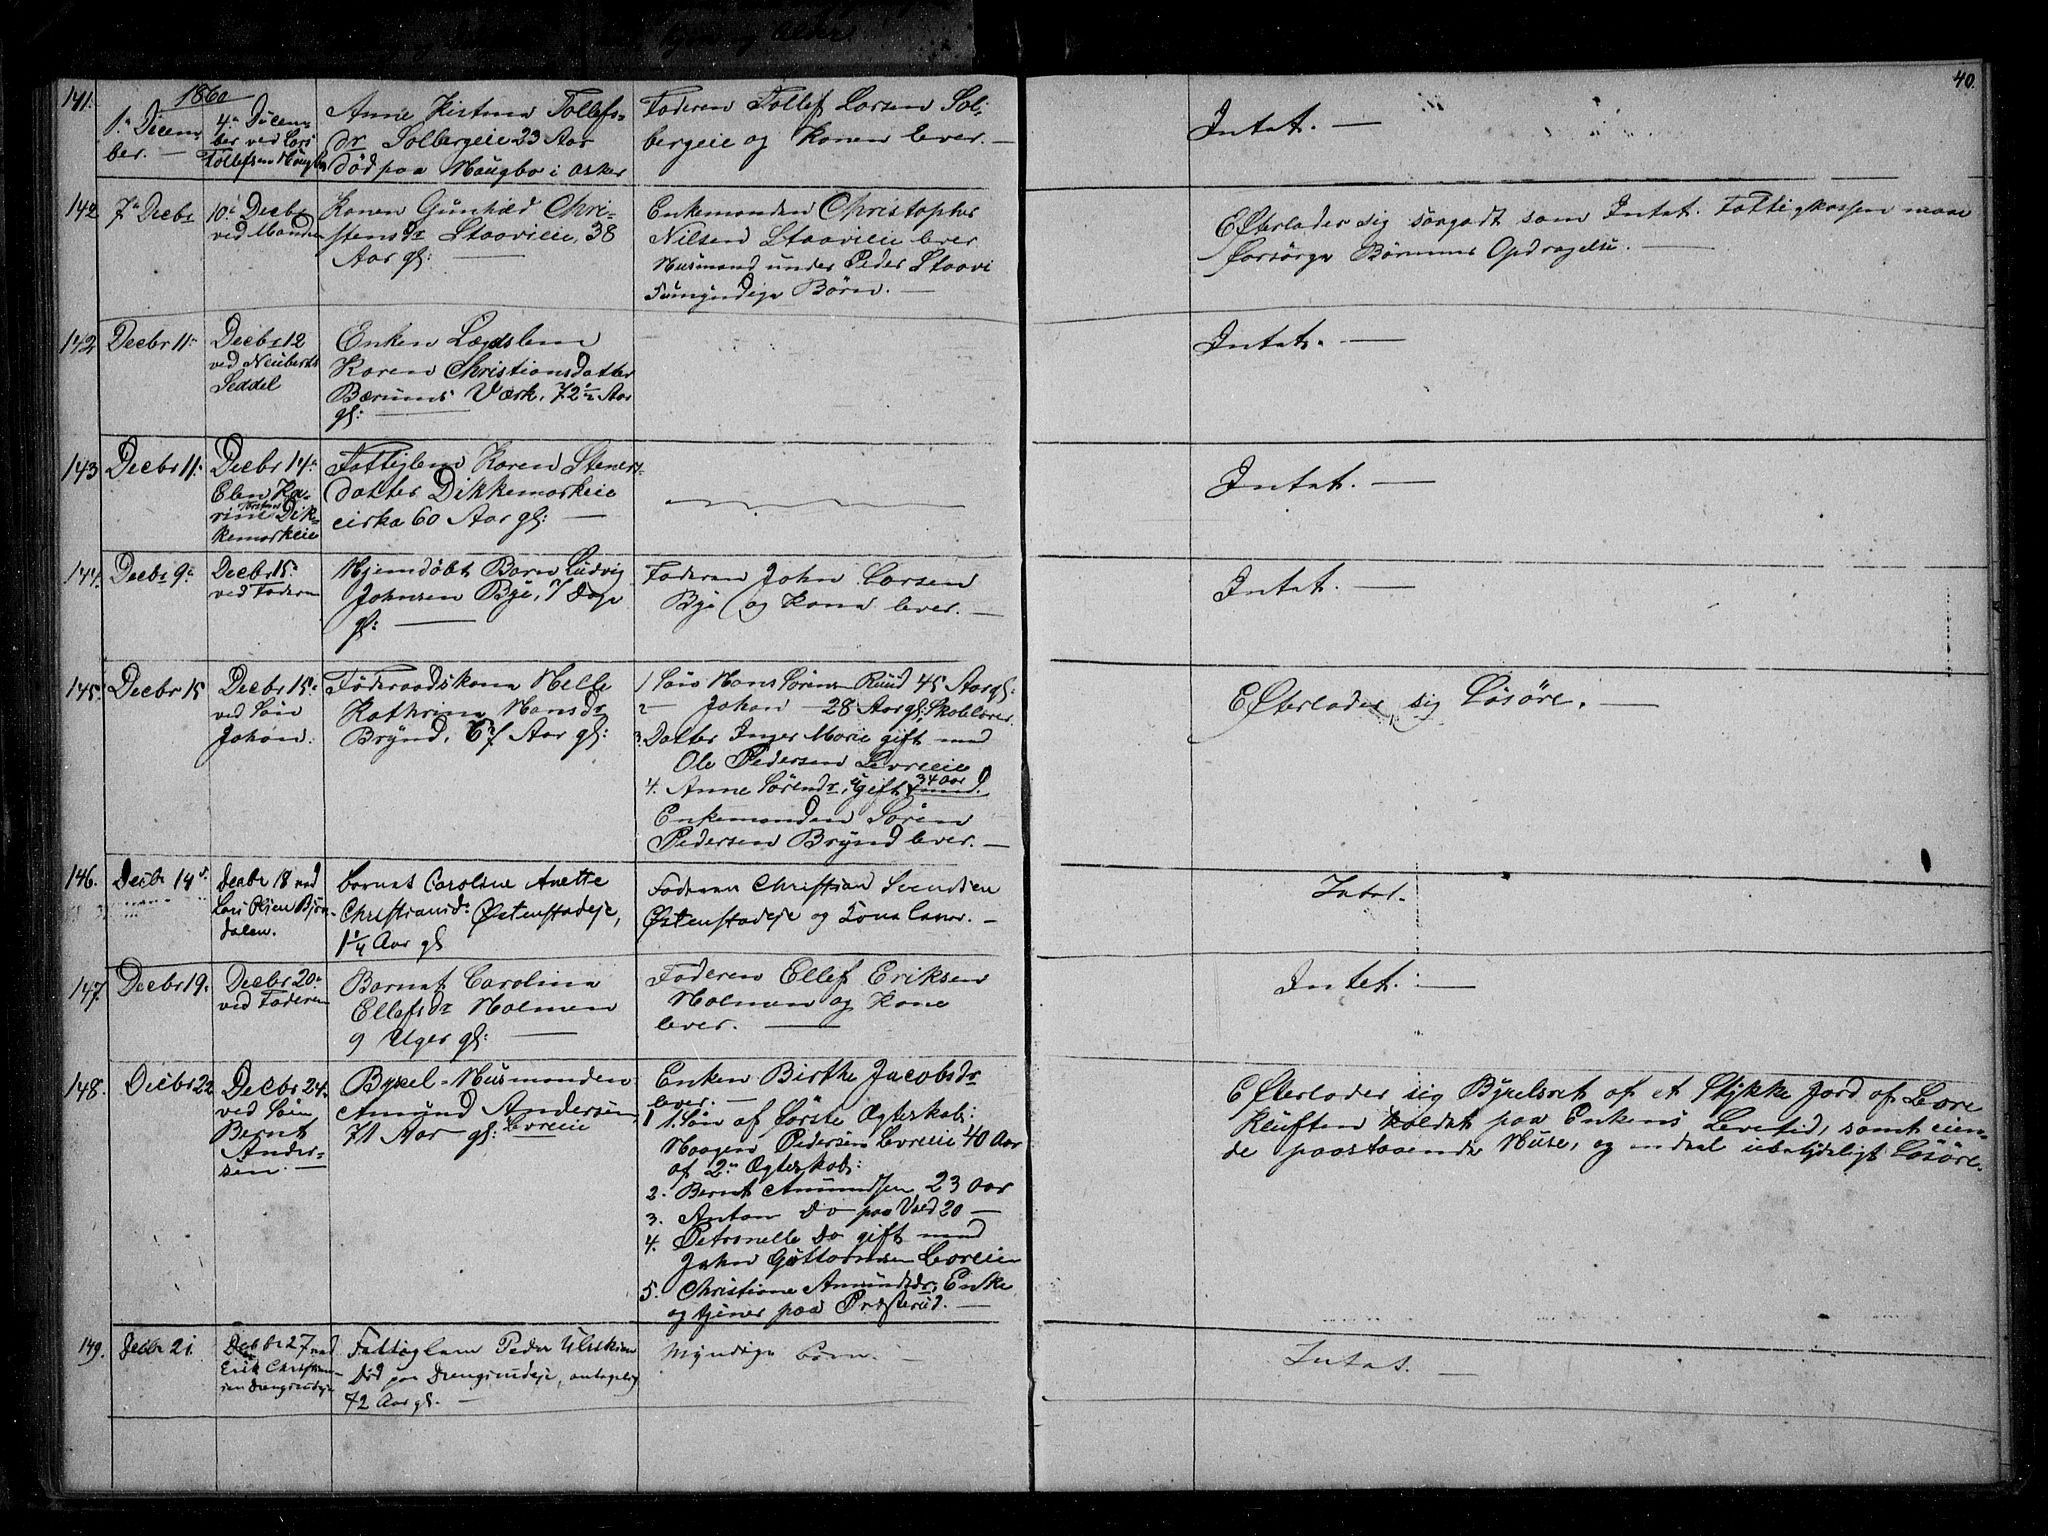 40.
1860
141.
1ste Decem-
ber. —
4de Decem-
ber ved Lars
Tollefsen Haugbo
Anne Kistina Tollefs-
dr Solbergeie 23 Aar
död paa Haugbo i Asker
Faderen Tollef Larsen Sol-
bergeie og Konen lever. —
Intet. —
142
7de Decbr
10de Decbr
ved Manden
Konen Gunhild Chri-
stensdr Staavieie, 38
Aar gl: —
Enkemanden Christopher
Nilsen Staavieie lever
Husmand under Peder Staavi
Börn. —
Efterlader sig saagodt som Intet. Fattigkassen maae
forsörge Börnenes Opdragelse. —
142
Decbr 11.
Decbr 12
ved Neuberths
Seddel
Enken Lægdslem
Karen Christiansdatter
Bærums Værk, 72½ Aar
gl: —
Intet. —
143
Decbr 11.
Decbr 14de
Elen Ka-
rine Torstens Dik-
kemarkeie
Fattiglem Karen Steners-
datter Dikkemarkeie
cirka 60 Aar gl: —
Intet. —
144.
Decbr 9de
Decbr 15.
ved Faderen
Hjemdöbt Barn Ludvig
Johnsen Bye, 7 Dage
gl: —
Faderen John Larsen
Bye og Kone lever. —
Intet. —
145.
Decbr 15
Decbr 15de
ved Sön
Johan.
Föderaadskone Helle
Kathrine Hansdr
Brynd, 67 Aar gl:
1 Sön Hans Sörensen Ruud 45 Aar gl:
2 — Johan — 28 Aar gl, Skolelærer.
3. Datter Inger Marie gift med
Ole Pedersen Levreeie
4. Anne Sörensdr, ugift 34 Aar
Enkemanden Sören
Pedersen Brynd lever. —
Efterlader sig Lösöre. —
146.
Decbr 14de
Decbr 18 ved
Lars Olsen Björn-
dalen.
Barnet Caroline Anette
Christiansdr Östenstadeje,
1¼ Aar gl
Faderen Christian Svendsen
Östenstadeje og Kone lever. —
Intet.
147.
Decbr 19.
Decbr 20de
ved Faderen
Barnet Carolina
Ellefsdr Holmen
9 Uger gl: —
Faderen Ellef Eriksen
Holmen og Kone
lever. —
Intet. —
148.
Decbr 22
Decbr 24.
ved Sön
Bernt
Ander-
sen. —
Byxel-Husmanden
Amund Andersen
71 Aar gl: Levreeie
Enken Birthe Jacobsdr
lever. —
1 1. Sön af förste Ægteskab:
Haagen Pedersen Levreeie 40 Aar
af 2det Ægteskab:
2. Bernt Amundsen 23 Aar
3. Anton Do paa 20 —
4. Petronelle Do gift med
John Guttormsen Levreeie
5. Christiane Amundsdr, Enke
og tjener paa Præsterud. —
Efterlader sig Byxelsret af et Stykke Jord af Levre
Klüften holdet paa Enkens Levetid, samt eien-
de paastaaende Huse, og endeel ubetydeligt Lösöre.
149.
Decbr 21.
Decbr 27 ved
Erik Christian-
sen Drengsrudeje
Fattiglem Peder Ulriksen
Död paa Drengsrudeje, antagelig
72 Aar gl. —
Myndige Börn. —
Intet. —